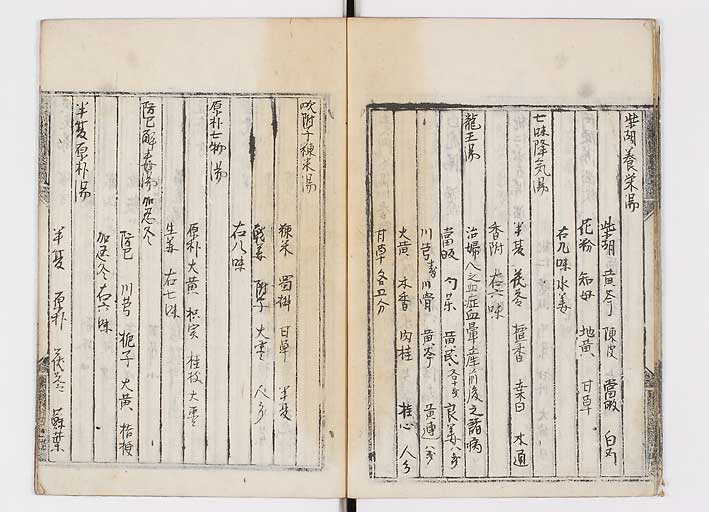 柴胡養荣湯
柴胡 黄芩 陳皮 當皈 白芍
花粉 知母 地黄 甘草
右九味水姜
七味降気湯
半夏 茯苓 桑白 木通
香附 右六味
龍王湯
治婦人之血症血暈産前後之諸病
當皈 勺薬 黄民 良姜
川芎 川骨 黄芩 黄連
大黄 木香 肉桂 桂心 人参
甘草各五分
附子粳米湯
粳米 甘草 半夏
乾姜 附子 大棗 人参
右八味
厚朴七物湯
厚朴 大黄 枳実 桂枝 大棗
生姜 右七味
防已解毒湯加忍冬
防已 川芎 梔子 大黄 桔梗
加忍冬右六味
半夏厚朴湯
半夏 厚朴 茯苓 蘇葉